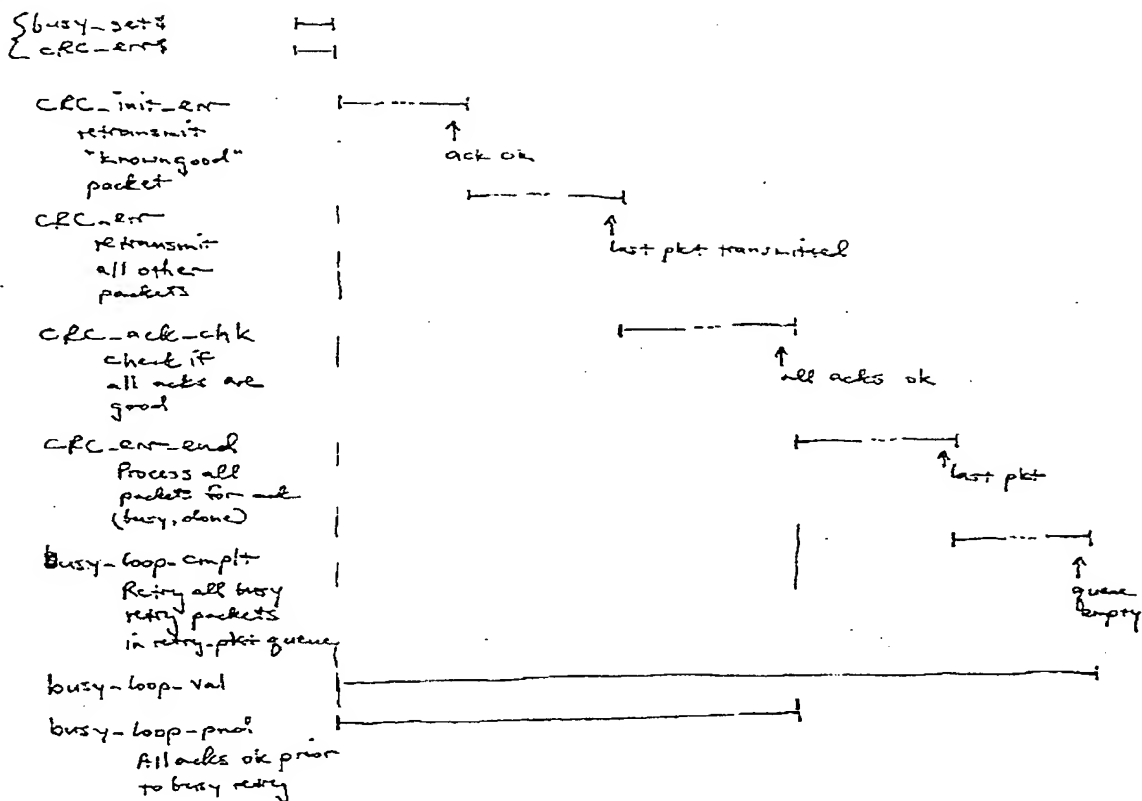 busy_set$
CRC_err$
CRC_init_err
retransmit
"known good"
packet
ack ok
CRC_err
retransmit
all other
packets
last pkt transmitted
CRC_ack_chk
check if
all acks are
good
all acks ok
CRC_err_end
Process all
packets for ack
(busy, done)
last pkt
busy-loop-cmplt
Retry all busy
retry packets
in retry-pkt queue
queue
empty
busy-loop-val
busy-loop-
All acks ok prior
to busy retry